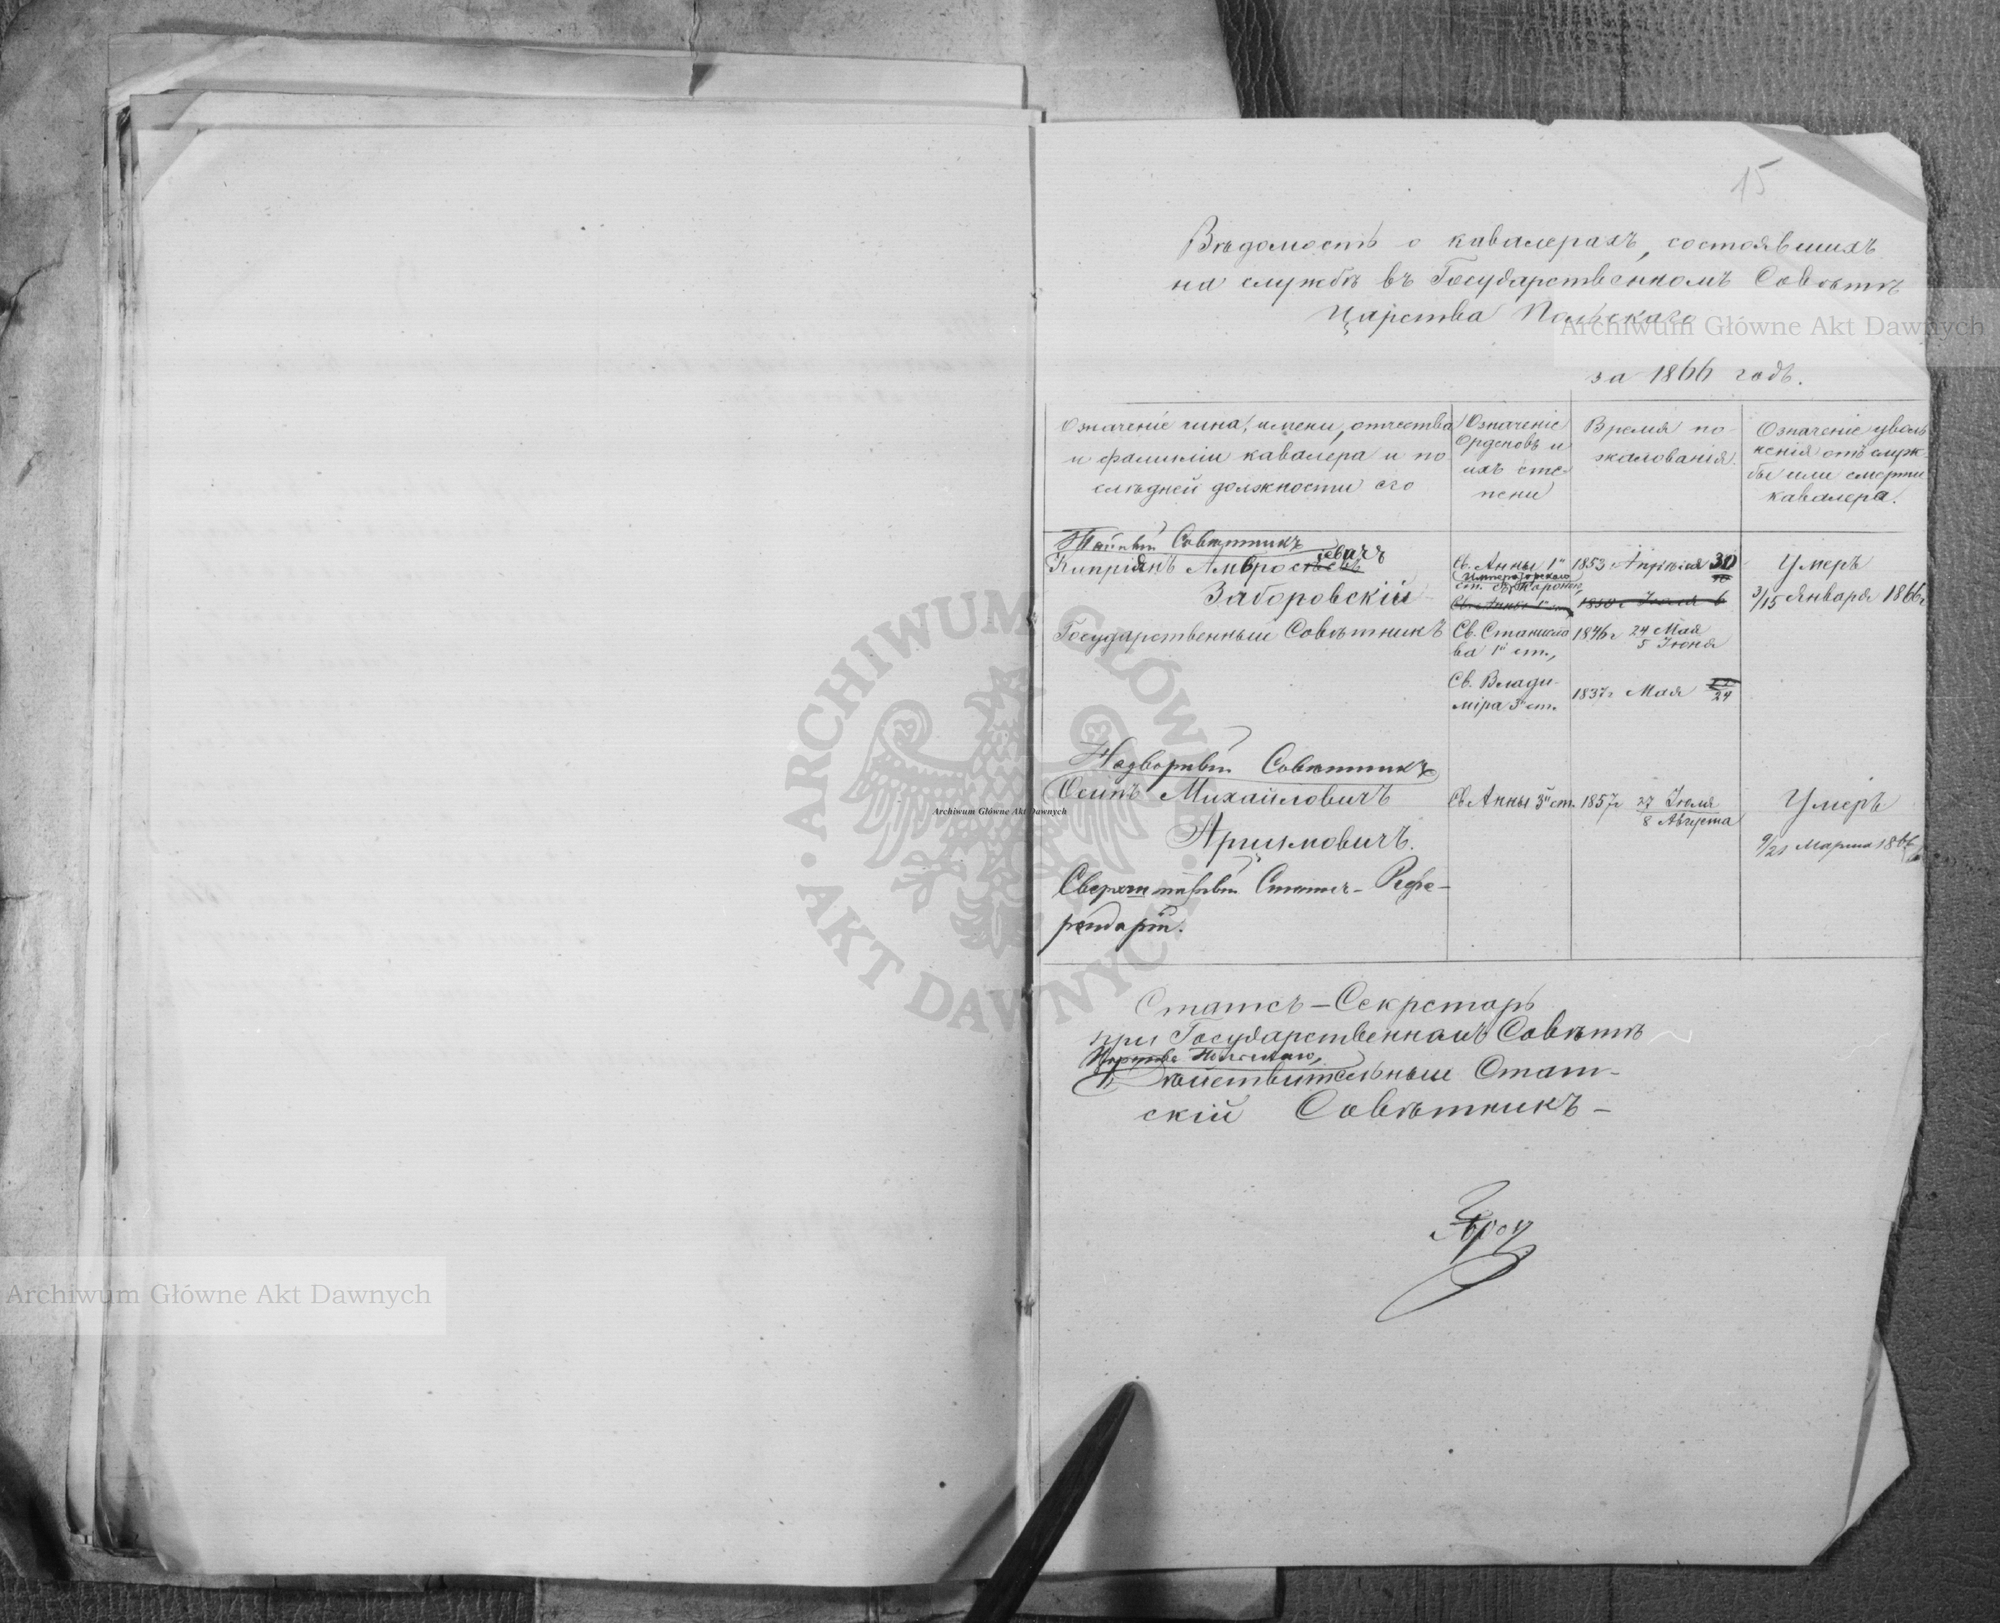 15
Вѣдомость о кавалерахъ, состоявшихъ
на службѣ въ Государственномъ Совѣтѣ
Царства Польскаго
за 1866 годъ.
Означеніе чина, имени, отчества
и фамиліи кавалера и по
слѣдней должности его
Означеніе
Орденовъ и
ихъ сте-
пени
Время по-
жалованія.
Означеніе уволь
ненія отъ служ-
бы или смерти
кавалера.
Тайный Совѣтникъ
Кипріянъ Амвросіевичъ
Заборовскій
Государственный Совѣтникъ
Св. Анны 1й
Императорскою
ст. съ Короною,
Св. Анны 1й ст.
Св. Станисла
ва 1й ст.,
Св. Влади-
міра 3 ст.
1853 Апрѣля 30
1850 г Іюля 6
1846 г 24 Мая
5 Іюня
1837 г Мая 24
Умеръ
3/15 Января 1866 г
Надворный Совѣтникъ
Осипъ Михайловичъ
Арцимовичъ.
Сверхштатный Статсъ-Рефе-
рендарій.
Св. Анны 3й ст.
1857 г 27 Іюля
8 Августа
Умеръ
9/21 Марта 1866
Статсъ-Секретарь
при Государственномъ Совѣтѣ
Царства Польскаго,
Дѣйствительный Стат-
скій Совѣтникъ-
Archiwum Główne Akt Dawnych
Archiwum Główne Akt Dawnych
Archiwum Główne Akt Dawnych
ARCHIWUM GŁÓWNE AKT DAWNYCH